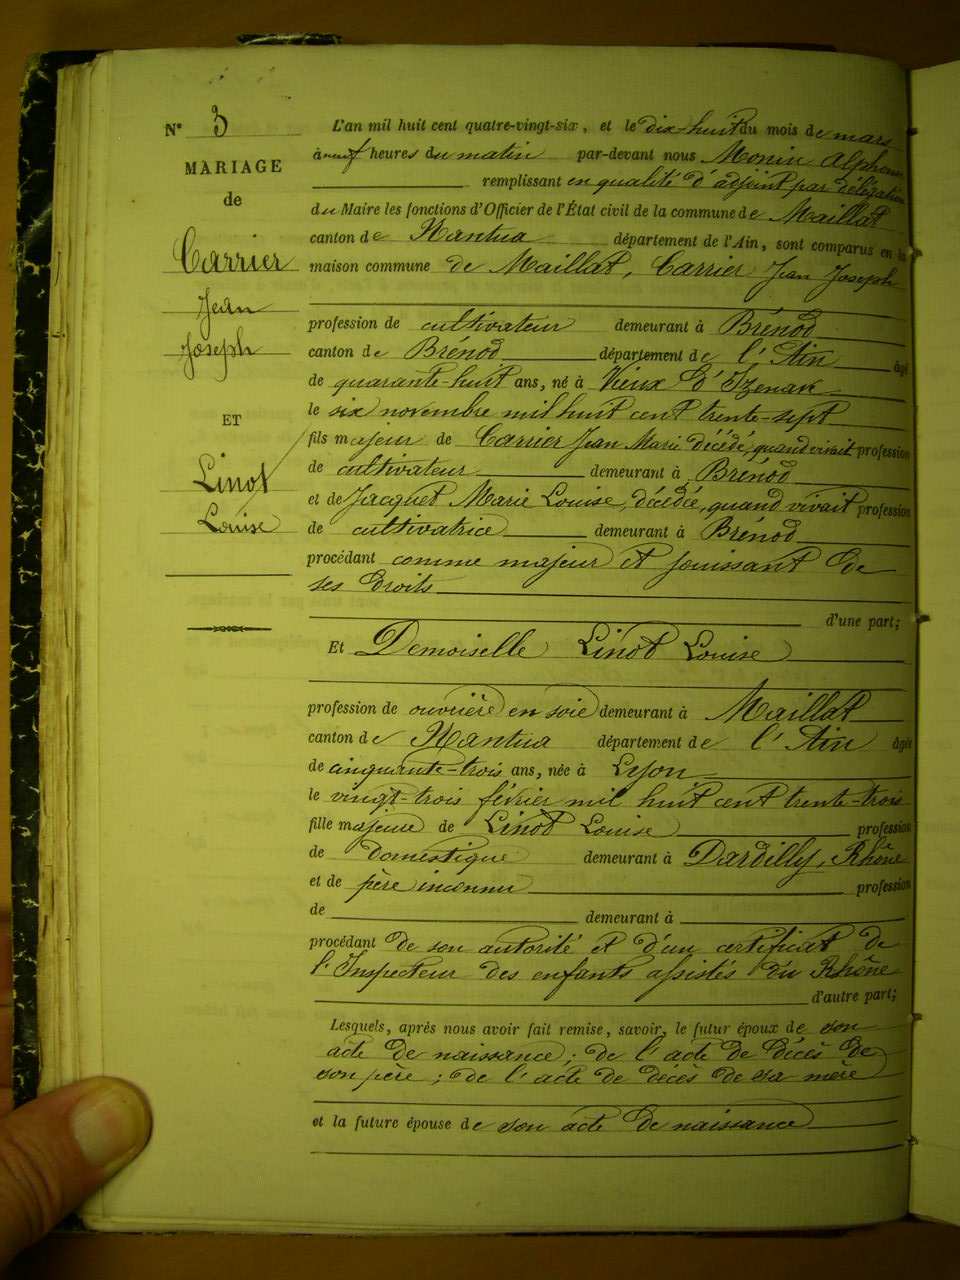 N° 3
MARIAGE
de
Carrier
Jean
Joseph
ET
Linot
Louise
L'an mil huit cent quatre-vingt-six, et le dix-huit du mois de mars
à neuf heures du matin par-devant nous Monin Alphonse
remplissant en qualité d'adjoint par délégation
du Maire les fonctions d'Officier de l'État civil de la commune de Maillat
canton de Nantua département de l'Ain, sont comparus en la
maison commune de Maillat, Carrier Jean Joseph
profession de cultivateur demeurant à Brénod
canton de Brénod département de l'Ain âgé
de quarante-huit ans, né à Vieux d'Izenave
le six novembre mil huit cent trente-sept
fils majeur de Carrier Jean Marie décédé, quand vivait profession
de cultivateur demeurant à Brénod
et de Jacquet Marie Louise, décédée, quand vivait profession
de cultivatrice demeurant à Brénod
procédant comme majeur et jouissant de
ses droits
d'une part;
Et Demoiselle Linot Louise
profession de ouvrière en soie demeurant à Maillat
canton de Nantua département de l'Ain âgée
de cinquante-trois ans, née à Lyon
le vingt-trois février mil huit cent trente-trois
fille majeure de Linot Louise profession
de domestique demeurant à Dardilly, Rhône
et de père inconnu profession
de demeurant à
procédant de son autorité et d'un certificat de
l'Inspecteur des enfants assistés du Rhône
d'autre part;
Lesquels, après nous avoir fait remise, savoir, le futur époux de son
acte de naissance; de l'acte de décès de
son père; de l'acte de décès de sa mère
et la future épouse de son acte de naissance